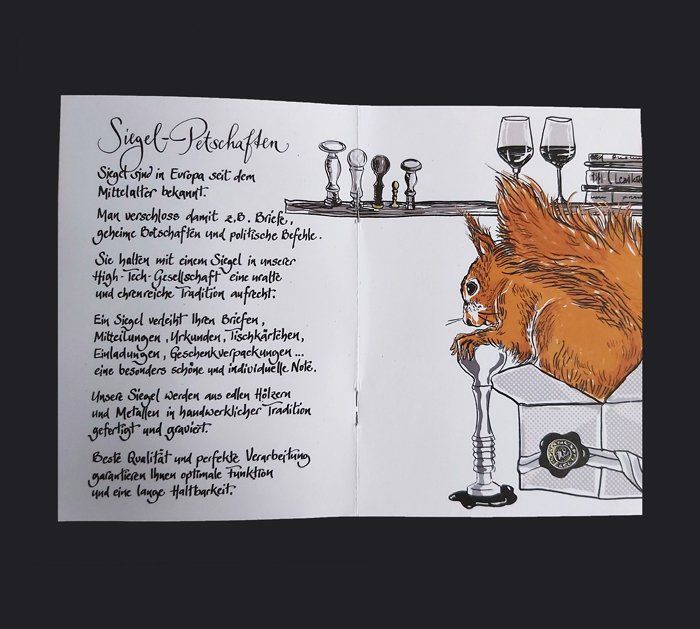 Siegel-Petschaften
Siegel sind in Europa seit dem
Mittelalter bekannt.
Man verschloss damit z.B. Briefe,
geheime Botschaften und politische Befehle.
Sie halten mit einem Siegel in unserer
High-Tech-Gesellschaft eine uralte
und ehrenreiche Tradition aufrecht.
Ein Siegel verleiht Ihren Briefen,
Mitteilungen, Urkunden, Tischkärtchen,
Einladungen, Geschenkverpackungen...
eine besonders schöne und individuelle Note.
Unsere Siegel werden aus edlen Hölzern
und Metallen in handwerklicher Tradition
gefertigt und graviert.
Beste Qualität und perfekte Verarbeitung
garantieren Ihnen optimale Funktion
und eine lange Haltbarkeit.